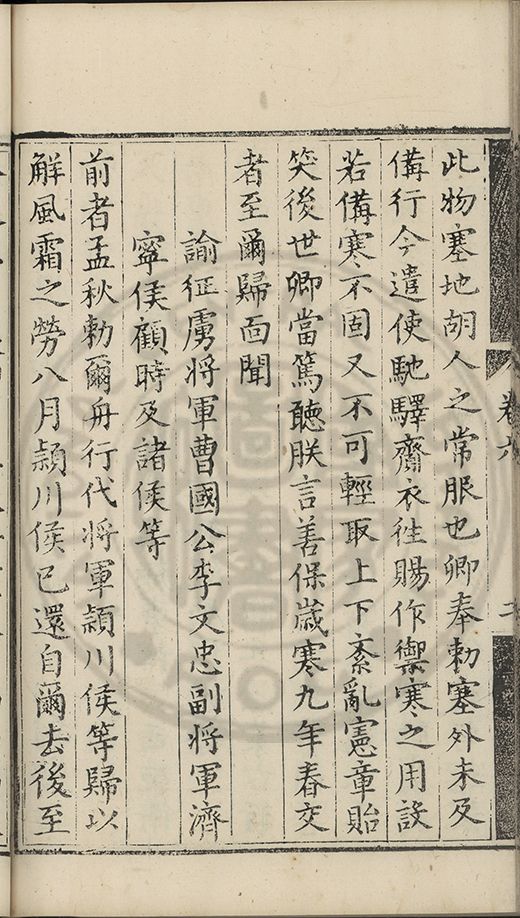 卷六
二
此物塞地胡人之常服也卿奉勑塞外未及
備行今遣使馳驛齎衣徃賜作禦寒之用設
若備寒不固又不可輕取上下紊亂憲章貽
笑後世卿當篤聽朕言善保歲寒九年春交
者至爾歸面聞
諭征虜將軍曹國公李文忠副將軍濟
寧侯顧時及諸侯等
前者孟秋勑爾舟行代將軍頴川侯等歸以
解風霜之勞八月頴川侯已還自爾去後至